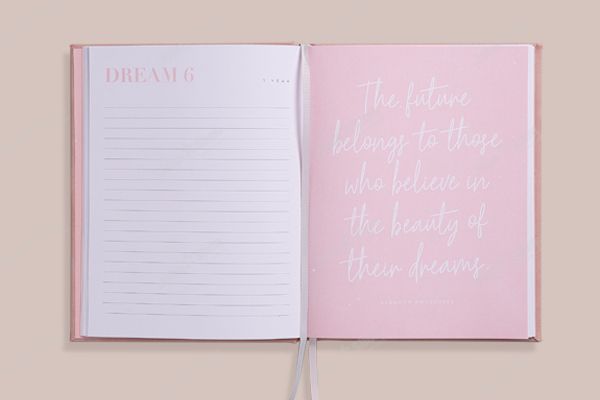 DREAM 6
The future
belongs to those
who believe in
the beauty of
their dreams.